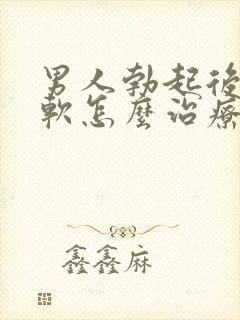 男人勃起後
軟怎麼治療
鑫鑫麻